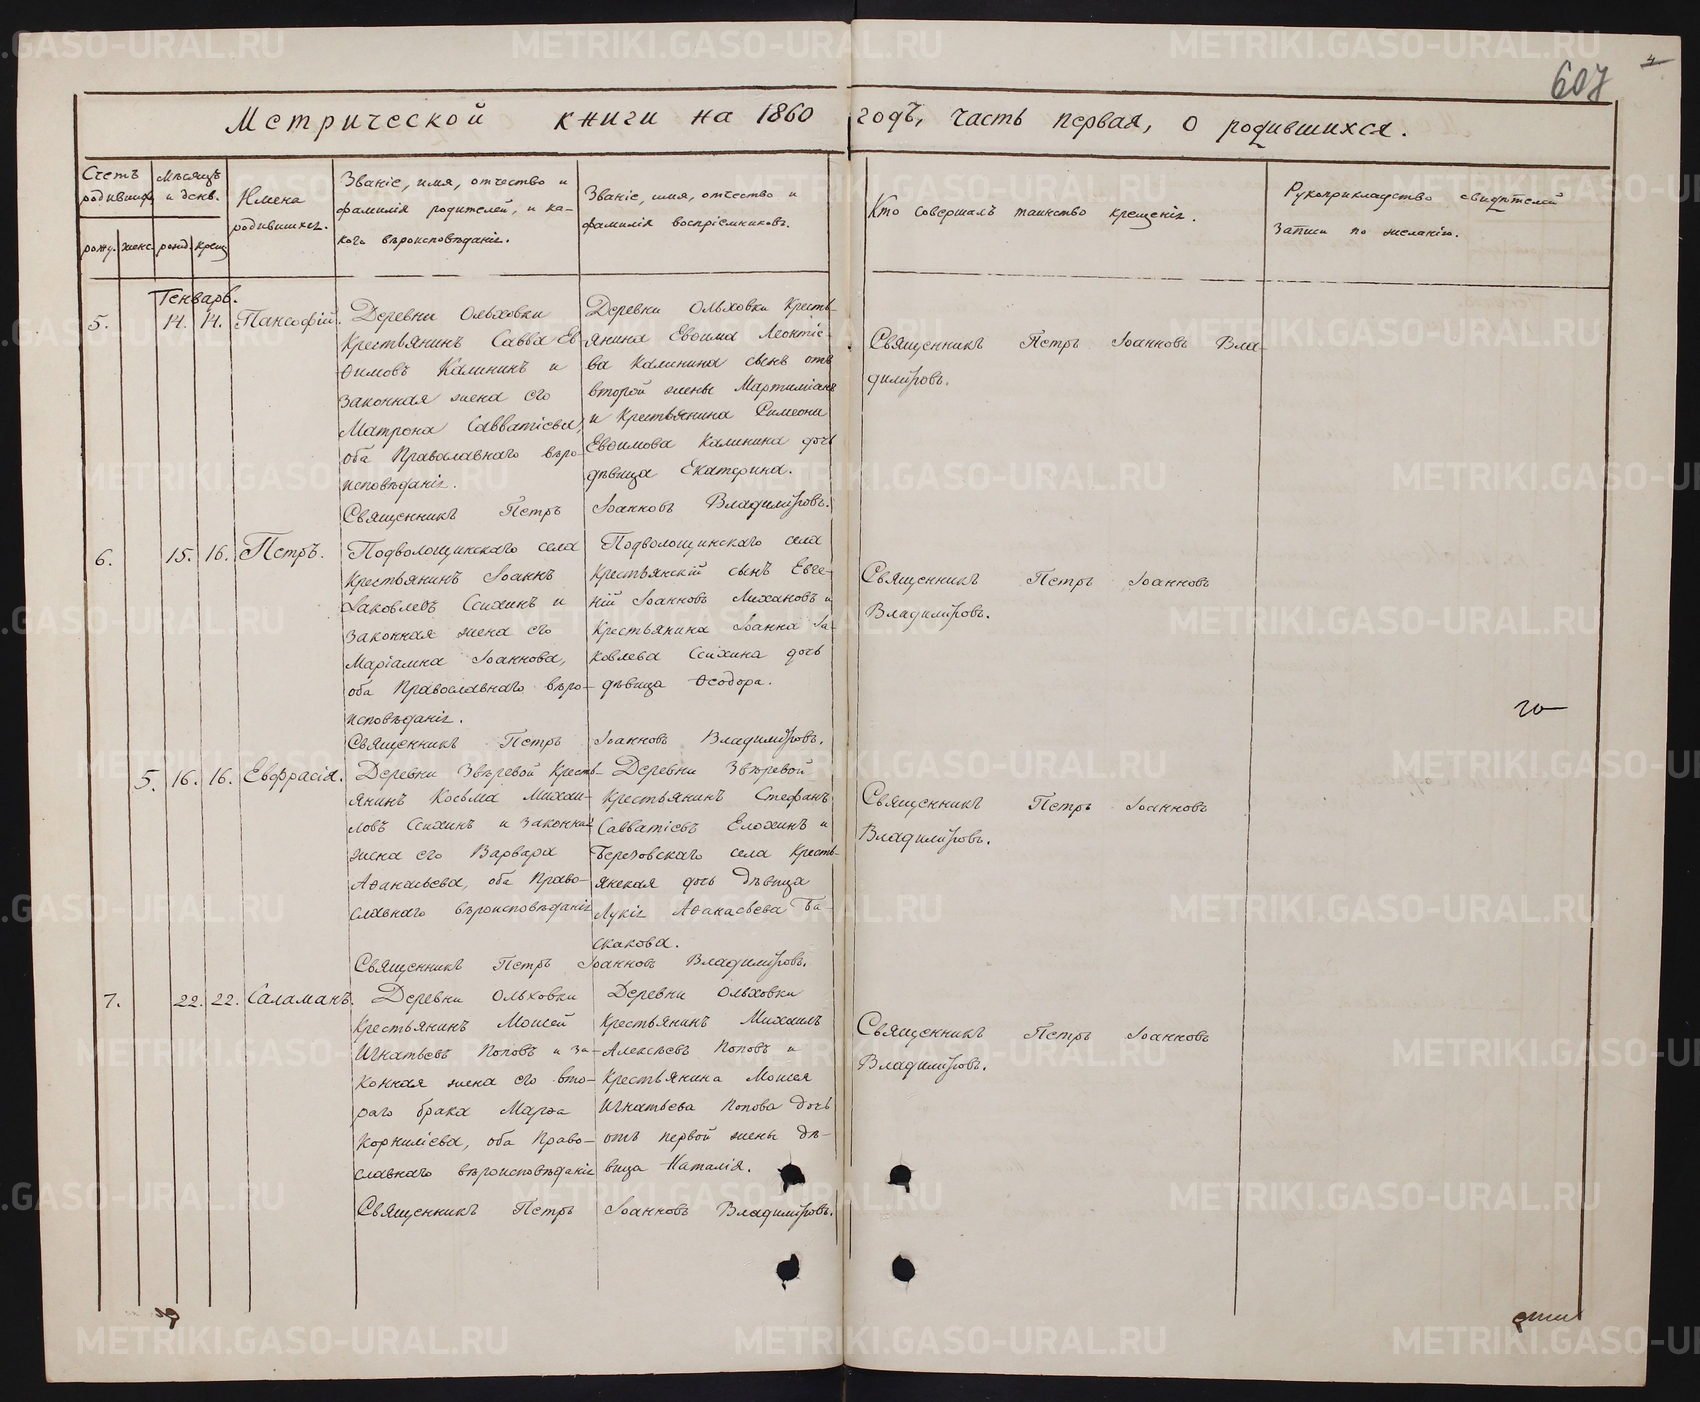 607
4
Метрической книги на 1860 годъ, часть первая, о родившихся.
Счетъ родившихся
Мѣсяцъ и день.
Имена родившихся.
Званіе, имя, отчество и
фамилія родителей, и ка-
кого вѣроисповѣданія.
Званіе, имя, отчество и
фамилія воспріемниковъ.
Кто совершалъ таинство крещенія.
Рукоприкладство свидѣтелей
записи по желанію.
женс. рожд. крещ.
Генварь.
5. 14. 14. Пансофій.
Деревни Ольховки
Крестьянинъ Савва Ев-
ѳимовъ Калининъ и
законная жена его
Матрона Савватіева,
оба Православнаго вѣро-
исповѣданія.
Деревни Ольховки Кресть-
янина Евѳима Леонтіе-
ва Калинина сынъ отъ
второй жены Мартиміанъ
и Крестьянина Симеона
Евѳимова Калинина дочь
дѣвица Екатерина.
Священникъ Петръ Іоанновъ Владиміровъ.
Священникъ Петръ Іоанновъ Вла-
диміровъ.
6. 15. 16. Петръ.
Подволошинскаго села
Крестьянинъ Іоаннъ
Іаковлевъ Ссихинъ и
законная жена его
Маріамна Іоаннова,
оба Православнаго вѣро-
исповѣданія.
Подволошинскаго села
Крестьянскій сынъ Евге-
ній Іоанновъ Лихановъ и
Крестьянина Іоанна Іа-
ковлева Ссихина дочь
дѣвица Ѳеодора.
Священникъ Петръ Іоанновъ Владиміровъ.
Священникъ Петръ Іоанновъ
Владиміровъ.
5. 16. 16. Евфрасія.
Деревни Звѣревой Кресть-
янинъ Косьма Михаи-
ловъ Ссихинъ и законная
жена его Варвара
Аѳанасьева, оба Право-
славнаго вѣроисповѣданія
Деревни Звѣревой
Крестьянинъ Стефанъ
Савватіевъ Елохинъ и
Березовскаго села Кресть-
янская дочь дѣвица
Лукія Аѳанасьева Ба-
скакова.
Священникъ Петръ Іоанновъ Владиміровъ.
Священникъ Петръ Іоанновъ
Владиміровъ.
7. 22. 22. Саламанъ.
Деревни Ольховки
Крестьянинъ Моисей
Игнатьевъ Поповъ и за-
конная жена его вто-
раго брака Марѳа
Корниліева, оба Право-
славнаго вѣроисповѣданія
Деревни Ольховки
Крестьянинъ Михаилъ
Алексѣевъ Поповъ и
Крестьянина Моисея
Игнатьева Попова дочь
отъ первой жены дѣ-
вица Наталія.
Священникъ Петръ Іоанновъ Владиміровъ.
Священникъ Петръ Іоанновъ
Владиміровъ.
METRIKI.GASO-URAL.RU